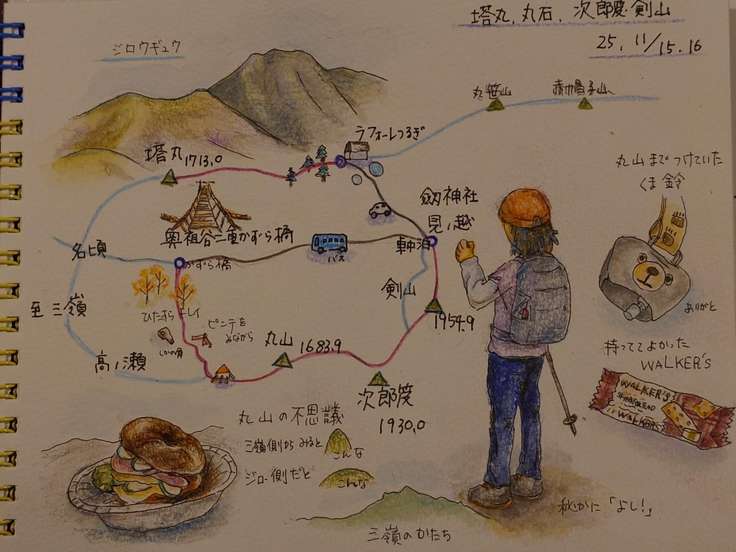 塔丸、丸石、次郎笈 剣山
25, 11/15.16
ジロウギュウ
丸笹山
赤帽子山
ラフォーレつるぎ
塔丸 1713,0
丸山までつけていた
くま鈴
劔神社
見ノ越
奥祖谷二重かずら橋
名頃
かずら橋
バス
車中泊
剣山
1954.9
至三嶺
ひたすらトレイ
ピンテを
みながら
しかの角
高ノ瀬
丸山 1683.9
次郎笈
1930,0
ありがと
持っててよかった
WALKER'S
WALKER'S
WALKER'S
丸山の不思議
三嶺側からみると
こんな
ジロー側だと
こんな
三嶺のかたち
密かに「よし!」